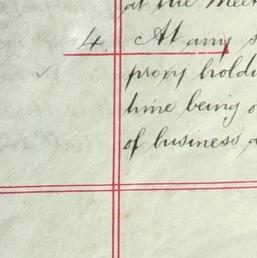 at the Meet
4. At any s
proxy holdi
time being o
of business a